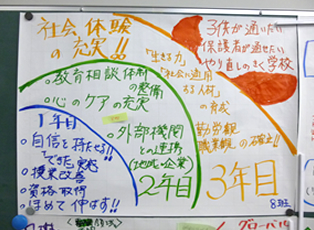 社会体験
の充実!!
子供が通いたい
保護者が通わせたい
やり直しのきく学校
「生きる力」
「社会に通用
する人材」
の育成
勤労観
職業観の確立!!
3年目
8班
・教育相談体制
の整備
・心のケアの充実
・外部機関
との連携
(地域・企業)
2年目
1年目
・自信を持たせる!!
できた実感
・授業改善
・資格取得
・ほめて伸ばす!!